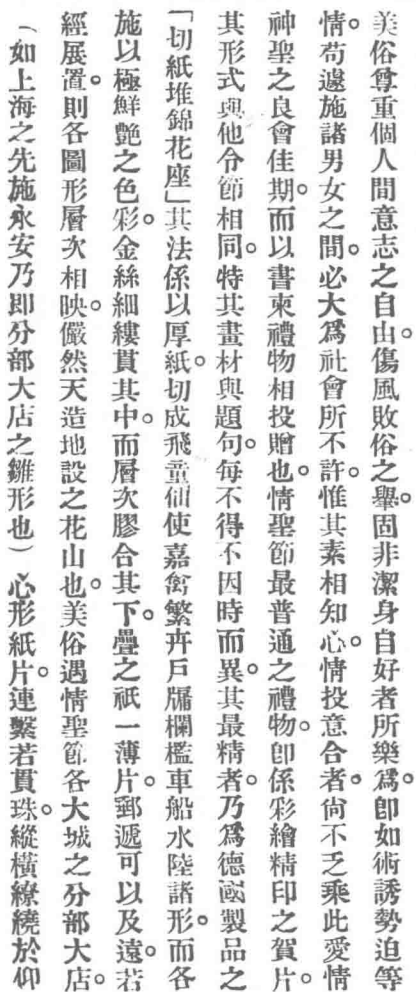 美俗尊重個人間意志之自由。傷風敗俗之舉。固非潔身自好者所樂爲。卽如術誘勢迫等
情。苟遽施諸男女之間。必大爲社會所不許。惟其素相知心。情投意合者。尙不乏乘此愛情
神聖之良會佳期。而以書柬禮物相投贈也。情聖節最普通之禮物。卽係彩繪精印之賀片。
其形式與他令節相同。特其畫材與題句。每不得不因時而異。其最精者。乃爲德國製品之
「切紙堆錦花座」其法係以厚紙。切成飛童仙使嘉禽繁卉戶牖欄檻車船水陸諸形。而各
施以極鮮艷之色彩。金絲細縷貫其中。而層次膠合其下。疊之祇一薄片。郵遞可以及遠。若
經展置。則各圖形層次相映。儼然天造地設之花山也。美俗遇情聖節各大城之分部大店。
（如上海之先施永安乃卽分部大店之雛形也）心形紙片。連繫若貫珠。縱橫繚繞於仰